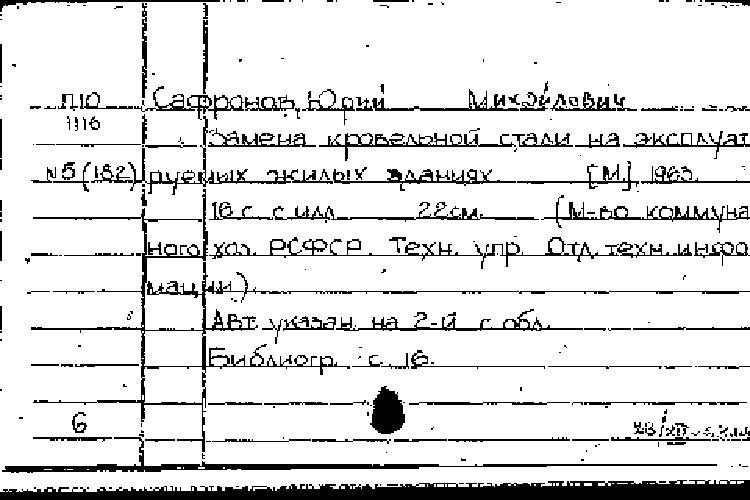 П10 Сафронов, Юрий Михайлович
1116
Замена кровельной стали на эксплуат
№5(182) руемых жилых зданиях. [М.], 1963.
16 с. с илл. 22см. (М-во коммуна
ного хоз. РСФСР. Техн. упр. Отд. техн. инфо
мации).
Авт. указан на 2-й с. обл.
Библиогр. с. 16.
6